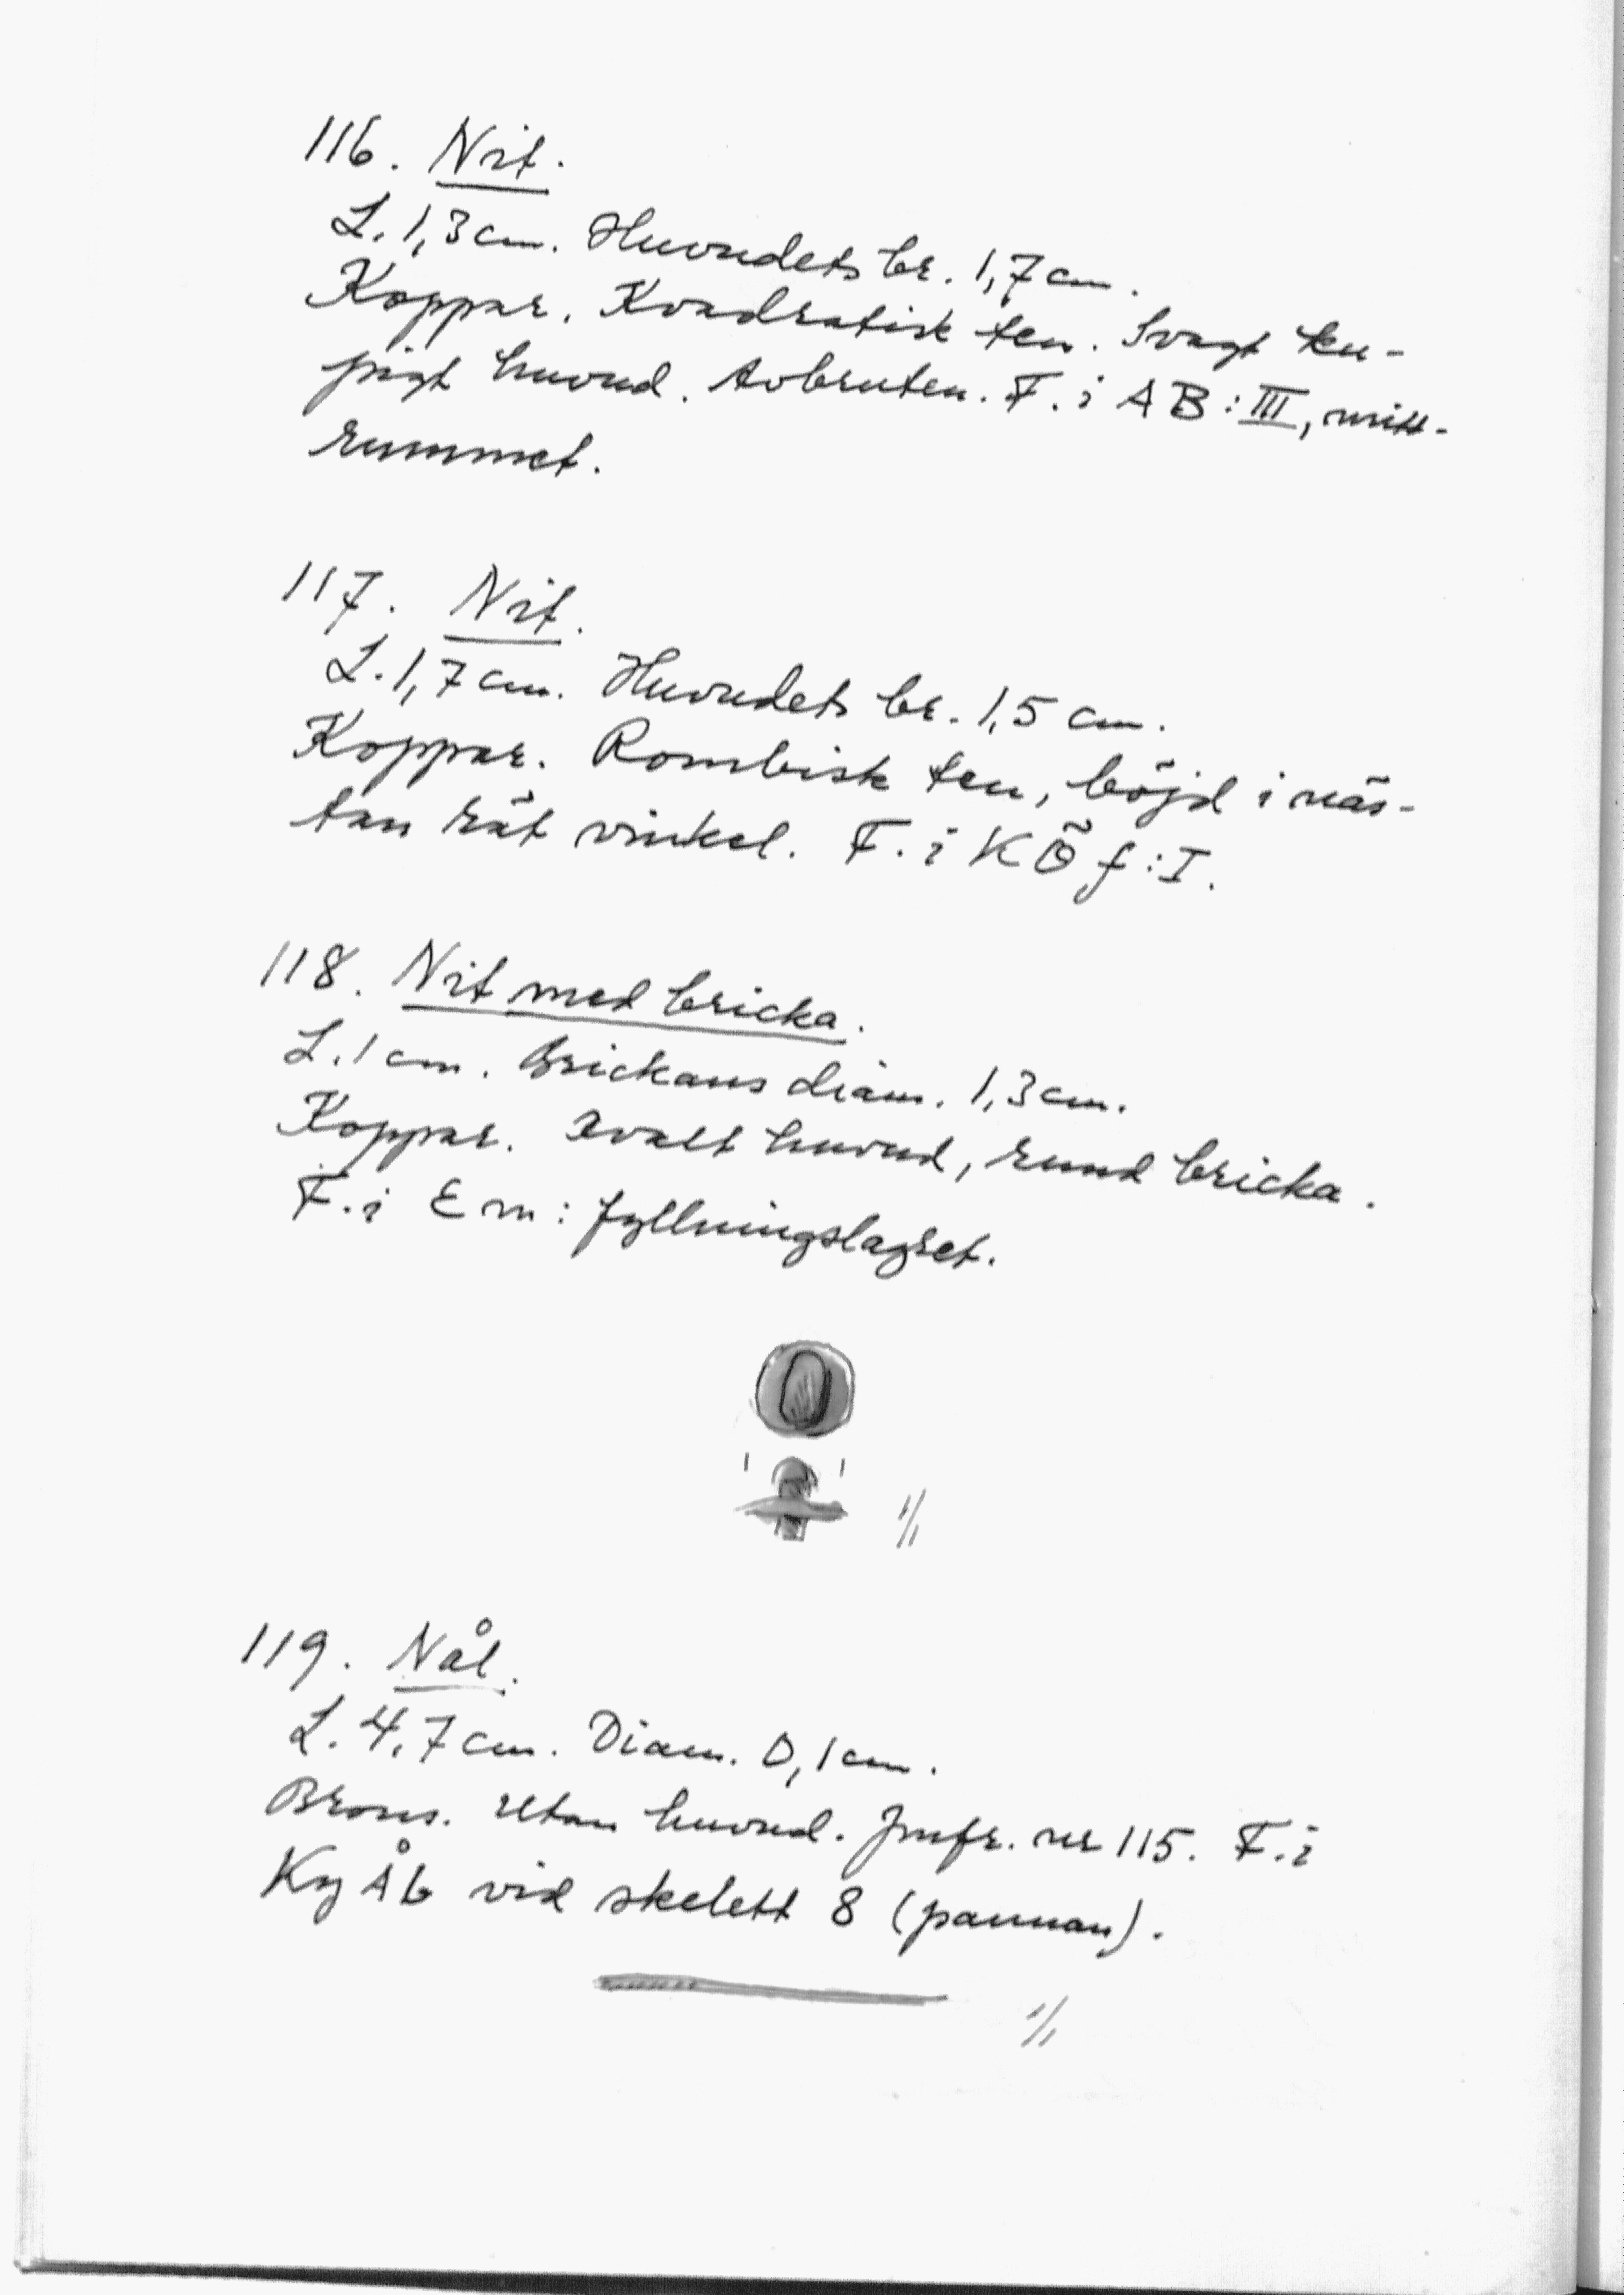 116. Nit.
L. 1,3 cm. Huvudets br. 1,7 cm.
Koppar. Kvadratisk ten. Svagt ku-
pigt huvud. Avbruten. F. i AB:III, mitt-
rummet.
117. Nit.
L. 1,7 cm. Huvudets br. 1,5 cm.
Koppar. Rombisk ten, böjd i näs-
tan rät vinkel. F. i KÖf:I.
118. Nit med bricka.
L. 1 cm. Brickans diam. 1,3 cm.
Koppar. Ovalt huvud, rund bricka.
F. i Em: fyllningslagret.
1/1
119. Nål.
L. 4,7 cm. Diam. 0,1 cm.
Brons. Utan huvud. Jmfr. nr 115. F. i
KyÅb vid skelett 8 (pannan).
1/1